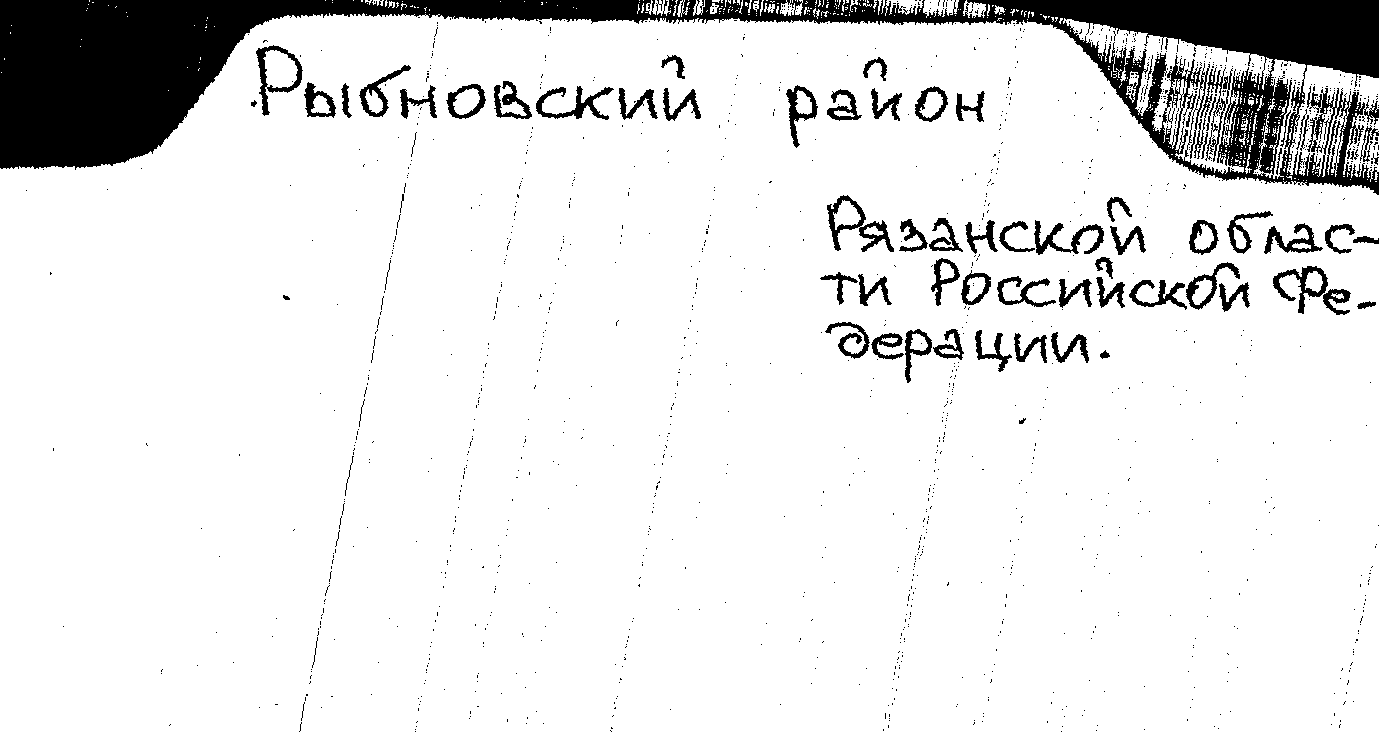 Рыбновский район
Рязанской облас-
ти Российской Фе-
дерации.